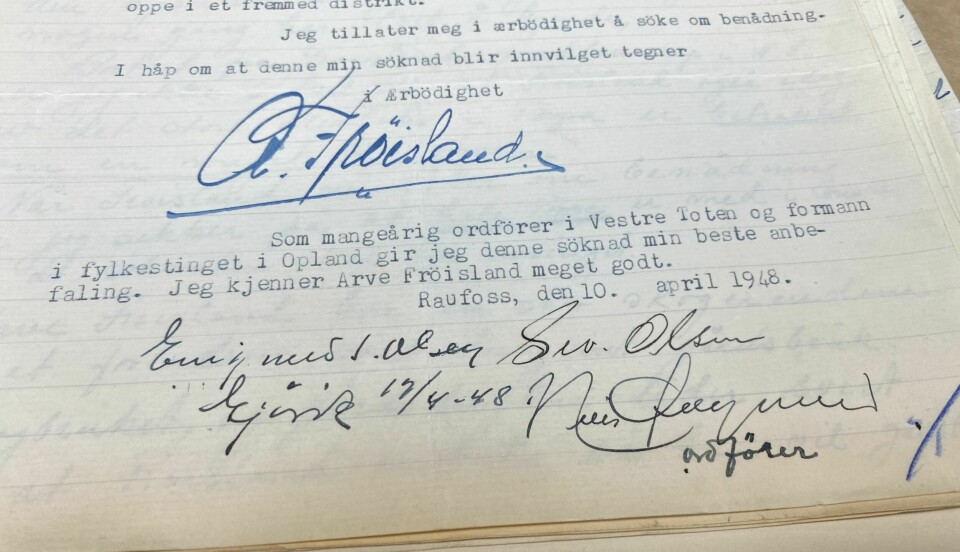 oppe i et fremmed distrikt.
Jeg tillater meg i ærbödighet å söke om benådning.
I håp om at denne min söknad blir innvilget tegner
i Ærbödighet
A. Fröisland.
Som mangeårig ordförer i Vestre Toten og formann
i fylkestinget i Opland gir jeg denne söknad min beste anbe-
faling. Jeg kjenner Arve Fröisland meget godt.
Raufoss, den 10. april 1948.
Enig med S. Olsen Sev. Olsen
Gjövik 17/4-48
ordförer